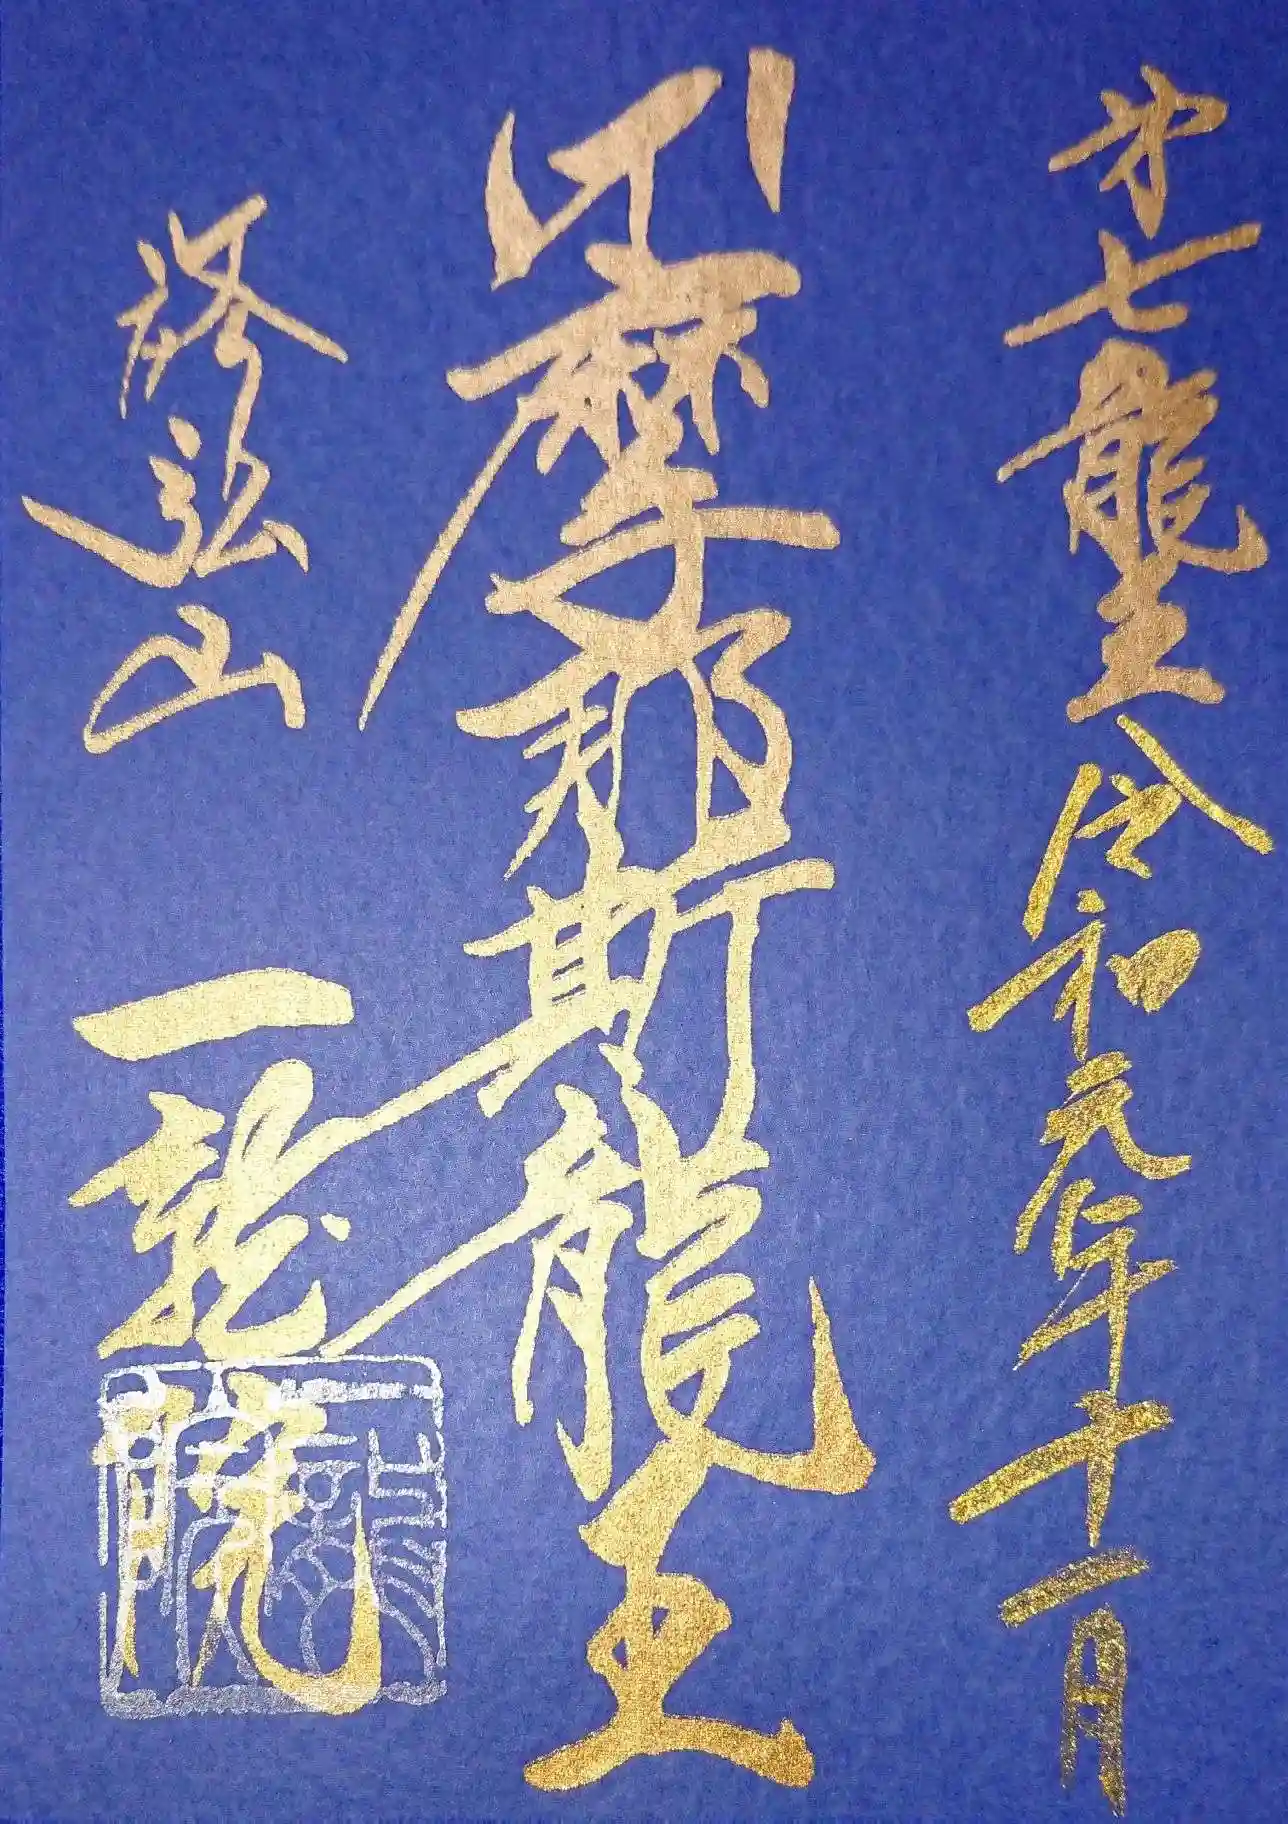 第七龍王 令和元年十一月
摩那斯龍王
弘山 一龍院